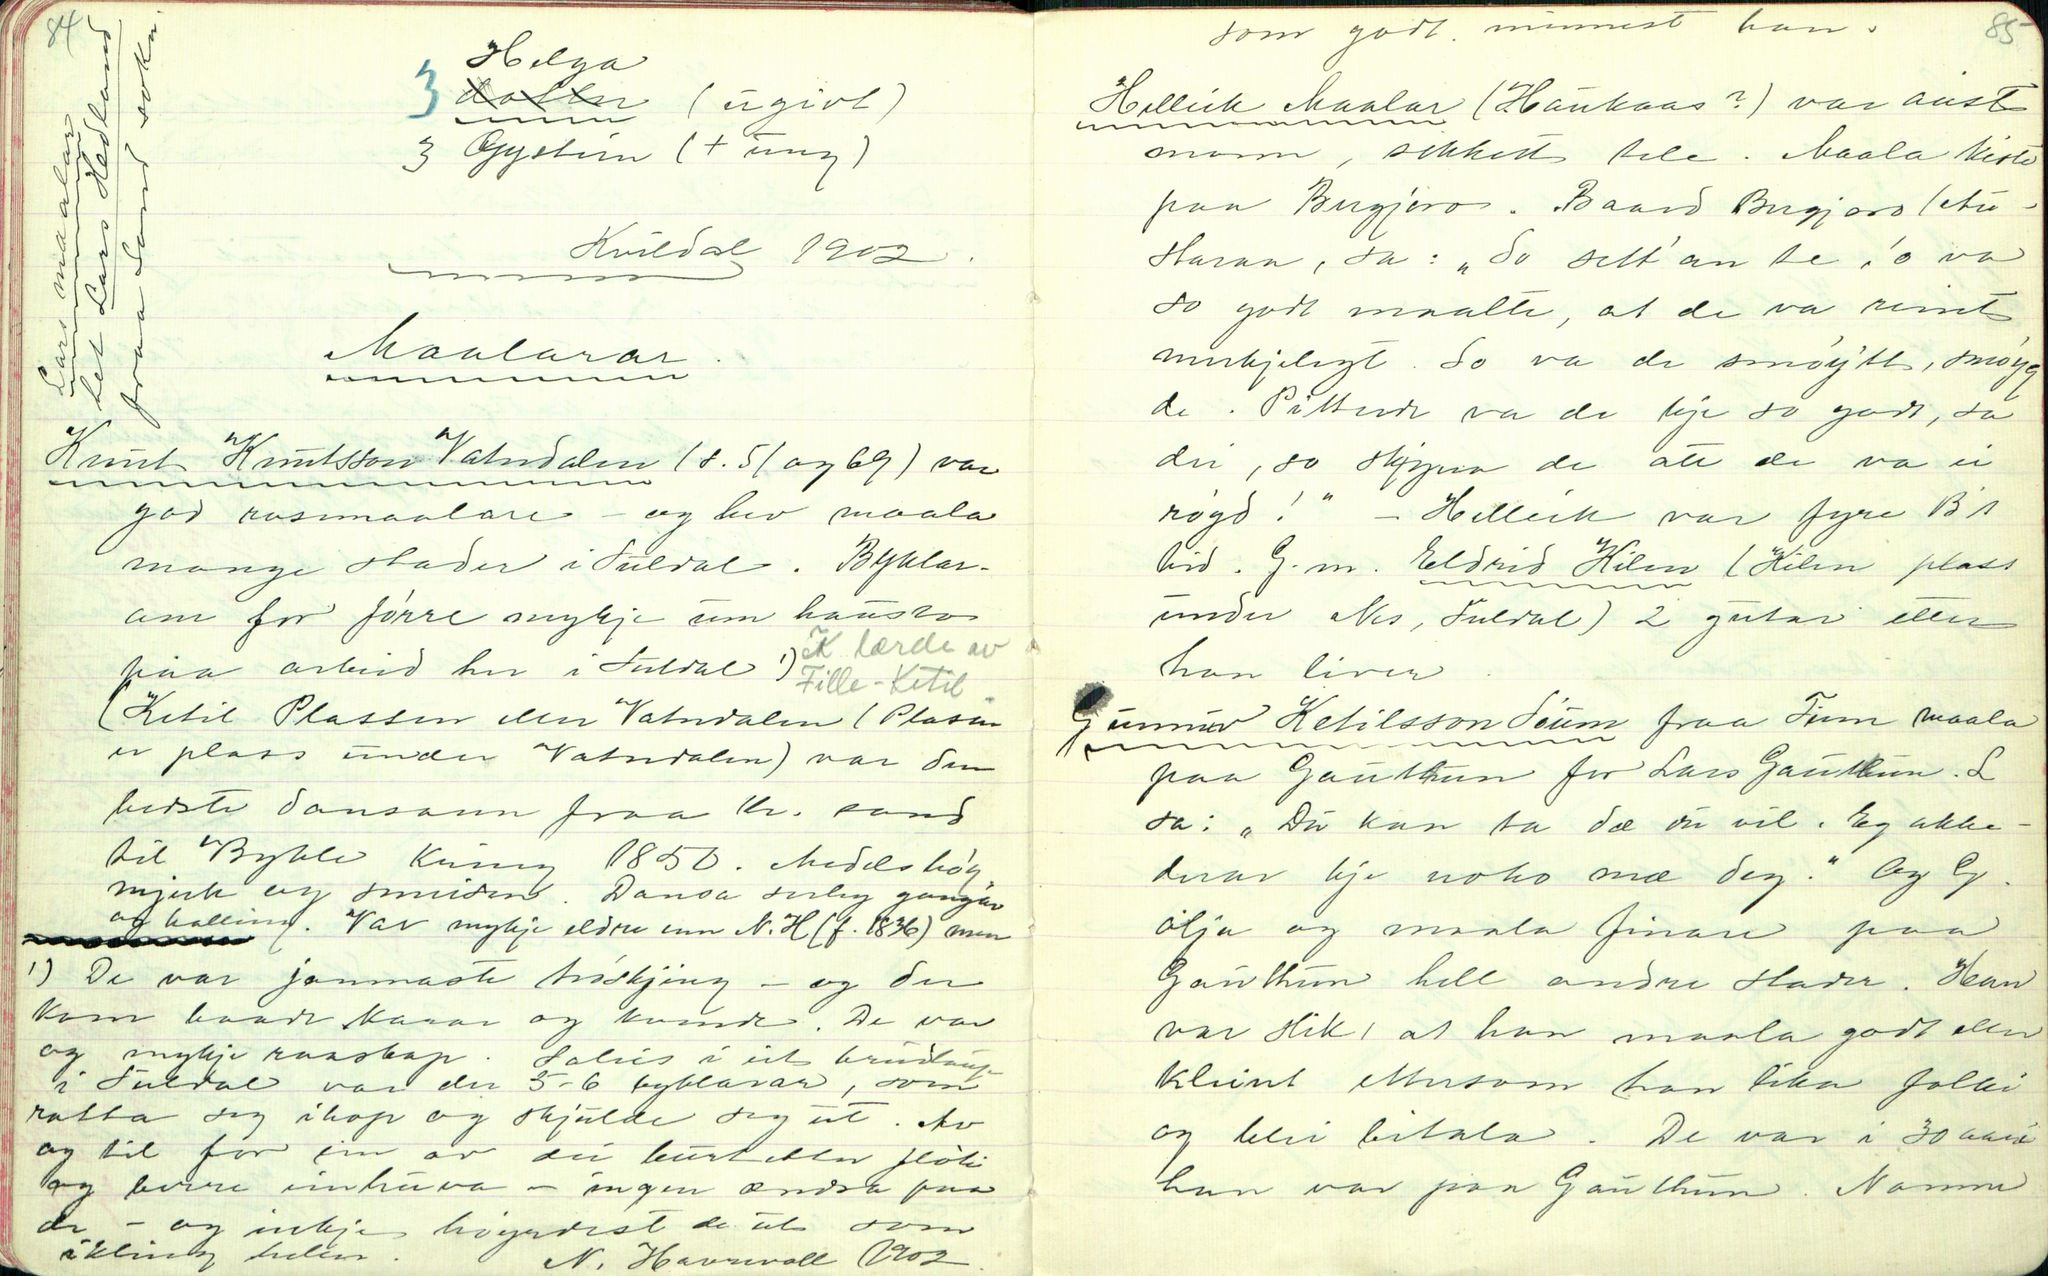 84
Lars maalar
het Lars Hedland
fraa Sand sokn
Helga
3 dotter (ugivt)
3 Øystein (+ ung)
Kvildal 1902.
Maalarar.
Knut Knutsson Vatndalen (s. 51 og 69) var
god rosemaalare - og hev maala
mange stader i Suldal. Byklar-
ane for jørre mykje um hausto
paa arbeid her i Suldal 1)
K lærde av
Fille-Ketil.
(Ketil Plassen elder Vatndalen (Plassen
er plass under Vatndalen) var den
bedste dansaren fraa Kr. sand
til Bykle kring 1850. Medels høg
mjuk og smidig. Dansa serleg gangar
og halling. Var mykje eldre enn N. H (f. 1836) men
1) De var jamnaste trøskjing - og der
kom baade karar og kvinde. De var
og mykje raaskap. I eit brudlaup
i Suldal var der 5-6 byklarar, som
rotta seg ihop og skjulde seg ut. Av
og til for ein av dei burt etter fløti
og berre einhuva - ingen andra paa
de - og inkje høgudest de ut som
ikling helder.
N. Havrevoll 1902.
85
som godt minnest han.
Helleik Maalar (Haukaas?) var aust
mann, sikkert tele. Maala kiste
paa Bergjoro. Baard Bergjoro
sa: "So sett'an te, 'o va
so godt maalte, at de va reint
merkjelegt. So va de smøytt, smøyg
de. Pittende va de kje so godt, sa
dei, so skjyna de att de va ei
røyd!" - Helleik var fyre B's
tid. G. m. Eldrid Kilen (Kilen plass
under Nes, Suldal) 2 gutar etter
han liver.
Gunnuv Ketilsson Sùum fraa Fum maala
paa Gauthun for Lars Gauthun. L
sa: "Du kan ta dæ du vil. Eg akke-
derar kje noko mæ deg." Og G.
olja og maala finare paa
Gauthun hell andre stader. Han
var slik, at han maala godt elder
kleint ettersom han lika folki
og blei bitala. De var i 30 aari
han var paa Gauthun. Namnet